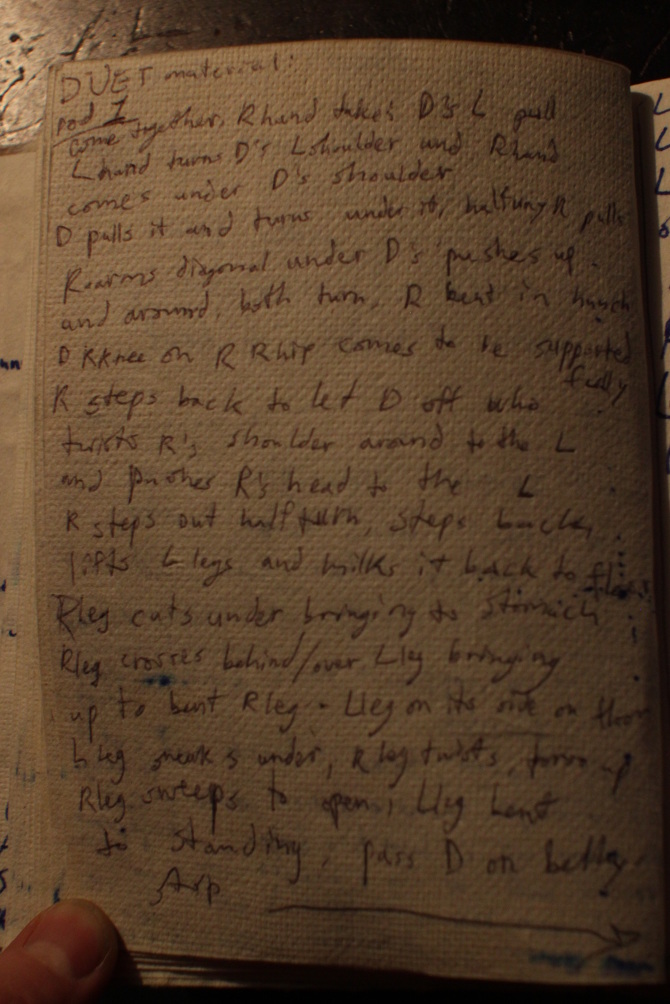 DUET material:
pod 1
come together, R hand takes D's L pull
L hand turns D's L shoulder and R hand
comes under D's shoulder
D pulls it and turns under it, halfway R pulls
R arms diagonal under D's pushes up.
and around, both turn, R bent in hunch
D R Knee on R R hip comes to be supported
fully.
R steps back to let D off who
twists R's shoulder around to the L
and pushes R's head to the L
R steps out half turn, steps back,
lifts L legs and milks it back to floor
R leg cuts under bringing to stomach.
R leg crosses behind/over L leg bringing
up to bent R leg. L leg on its side on floor
L leg sneaks under, R leg twists, torso up
R leg sweeps to open, L leg bent
to standing, pass D on belly.